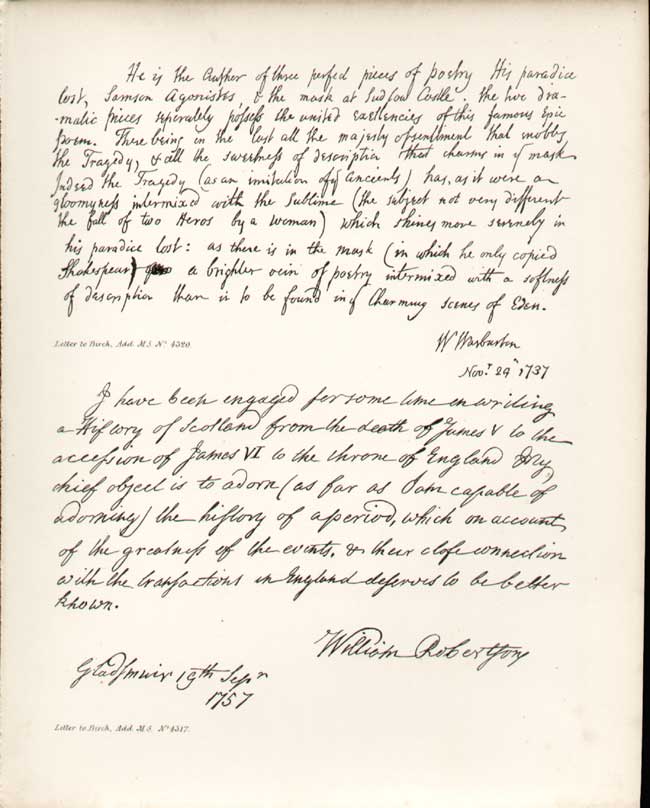 He is the Author of three perfect pieces of poetry His paradice
lost, Samson Agonistes & the mask at Ludlow Castle. the two dra-
-matic pieces seperately possess the united excellencies of this famous Epic
Poem. There being in the last all the majesty of sentiment that
the Tragedy, & all the sweetness of description that charms in ye mask
Indeed the Tragedy (as an imitation of ye Ancients) has, as it were a
gloomyness intermixed with the Sublime (the subject not very different
the fall of two Heros by a woman) which shines more serenely in
his paradice lost: as there is in the mask (in which he only copied
Shakespear) a brighter vein of poetry intermixed with a softness
of description than is to be found in ye Charming scenes of Eden.
W Warburton
Novr 29th 1737
Letter to Birch, Add. M.S. No 4320.
I have been engaged for some time in writing
a History of Scotland from the death of James V to the
accession of James VI to the throne of England My
chief object is to adorn (as far as I am capable of
adorning) the history of a period, which on account
of the greatness of the events, & their close connection
with the transactions in England deserves to be better
known.
William Robertson
Gladsmuir 19th Sepr
1757
Letter to Birch, Add. M.S. No 4317.